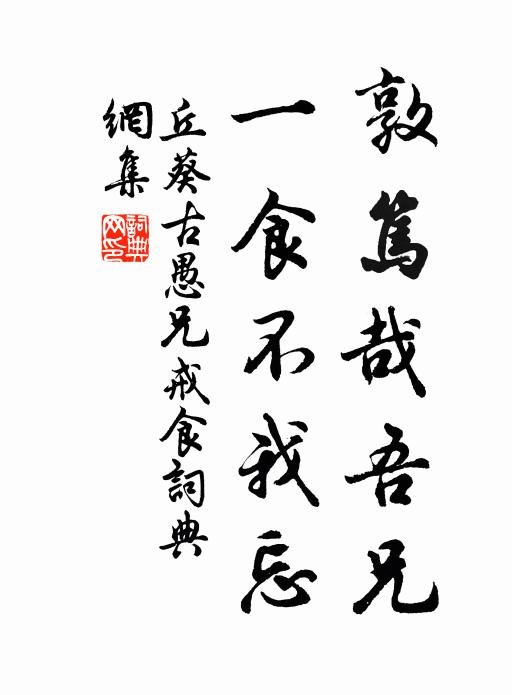 敦篤哉吾兄
一食不我忘
丘葵古愚兄戒食詞典
網集
詞典网印